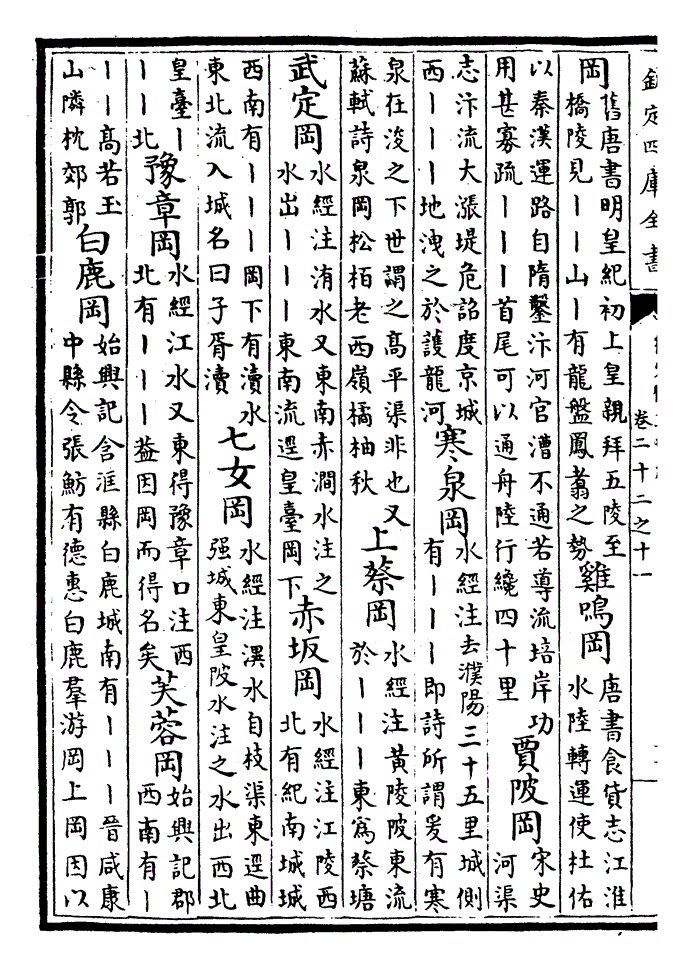 欽定四庫全書
卷二十二之十一
岡
舊唐書明皇紀初上皇親拜五陵至
橋陵見丨丨山丨有龍盤鳳翥之勢
雞鳴岡
唐書食貨志江淮
水陸轉運使杜佑
以秦漢運路自隋鑿汴河官漕不通若導流培岸功
用甚寡疏丨丨丨首尾可以通舟陸行纔四十里
賈陂岡
宋史
河渠
志汴流大漲堤危詔度京城
西丨丨丨地洩之於護龍河
寒泉岡
水經注去濮陽三十五里城側
有丨丨丨即詩所謂爰有寒
泉在浚之下世謂之高平渠非也又
蘇軾詩泉岡松栢老西嶺橘柚秋
上蔡岡
水經注黃陵陂東流
於丨丨丨東爲蔡塘
武定岡
水經注洧水又東南赤澗水注之
水出丨丨丨東南流逕皇臺岡下
赤坂岡
水經注江陵西
北有紀南城城
西南有丨丨丨岡下有瀆水
東北流入城名曰子胥瀆
七女岡
水經注潩水自枝渠東逕曲
强城東皇陂水注之水出西北
皇臺丨
丨丨北
豫章岡
水經江水又東得豫章口注西
北有丨丨丨葢因岡而得名矣
芙蓉岡
始興記郡
西南有丨
丨丨高若玉
山隣枕郊郭
白鹿岡
始興記含洭縣白鹿城南有丨丨丨晉咸康
中縣令張魴有德惠白鹿羣游岡上岡因以